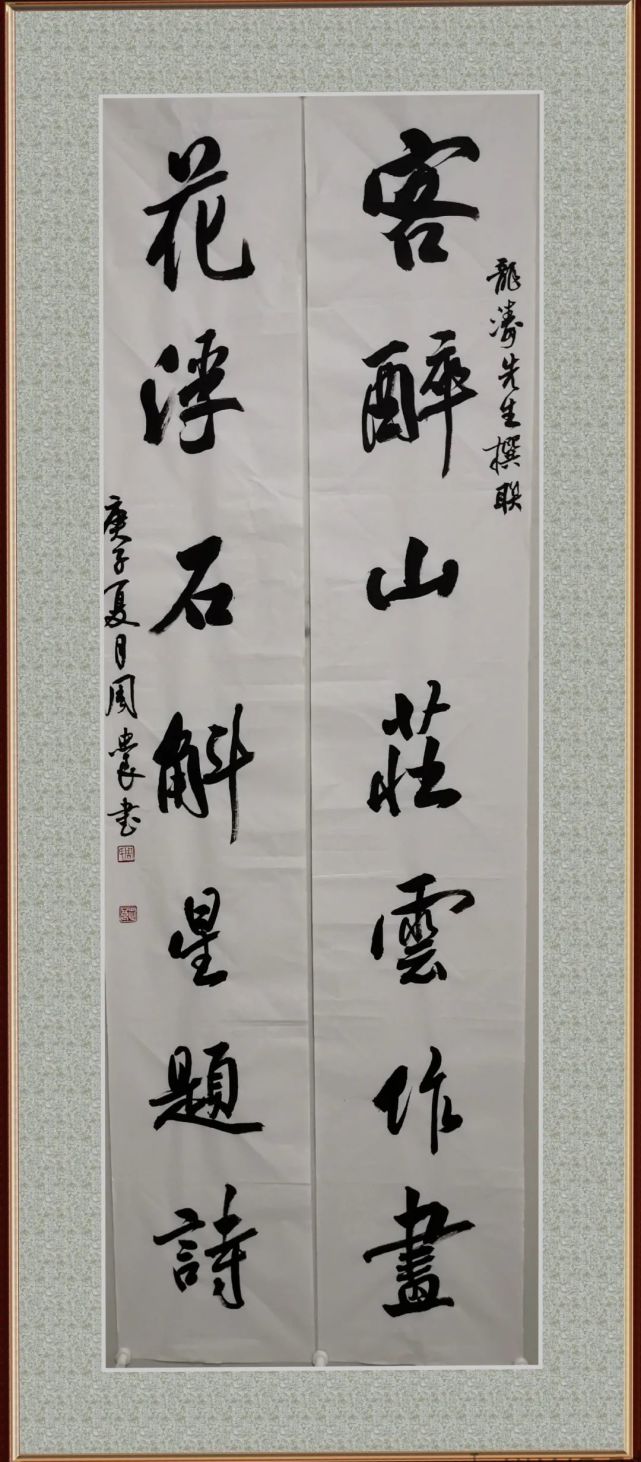 龍濤先生撰聯
客醉山莊雲作畫
花浮石斛星題詩
庚子夏月周裳书